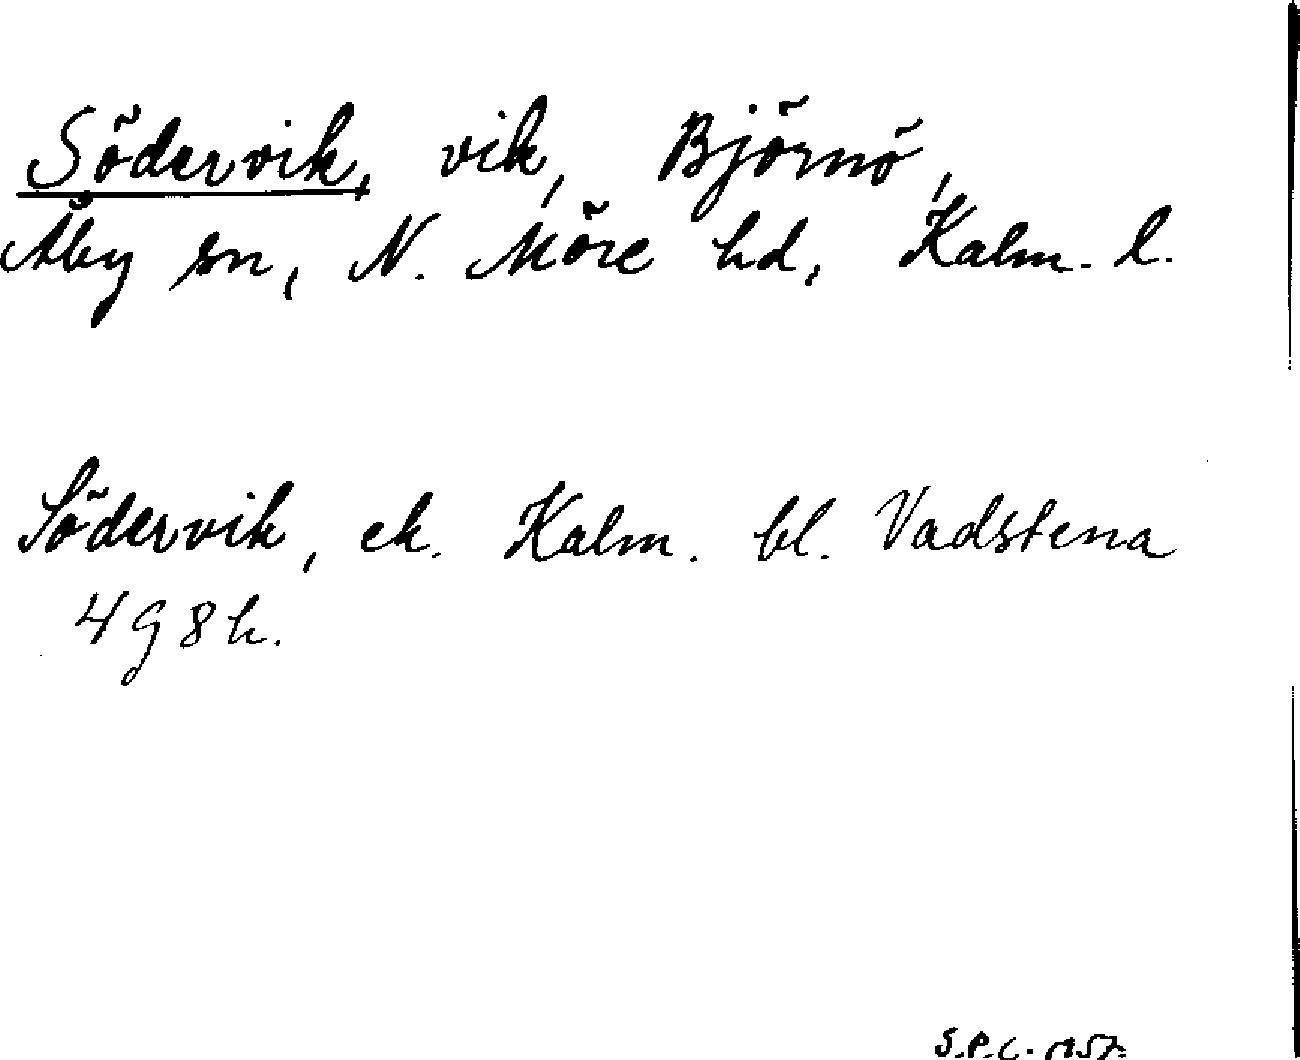 Södervik, vik, Björnö,
Åby sn, N. Möre hd, Kalm. l.
Södervik, ek. Kalm. bl. Vadstena
4 9 8 h.
S.P.C. 1957.